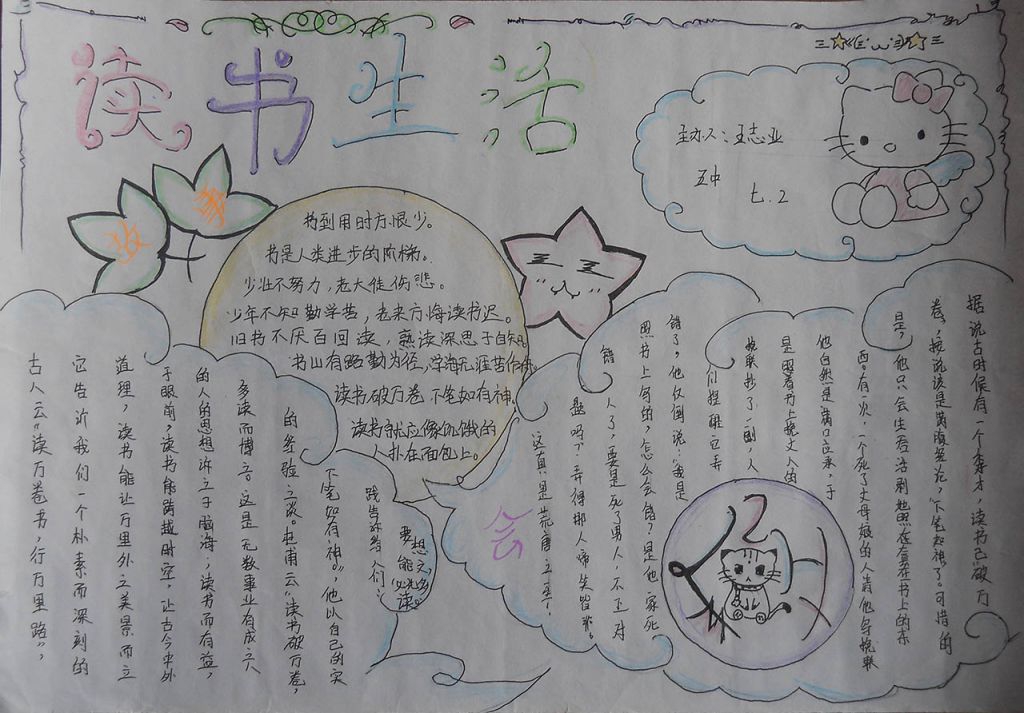 读书生活
主办人：王志业
五中
七.2
故事
会
书到用时方恨少。
书是人类进步的阶梯。
少壮不努力，老大徒伤悲。
少年不知勤学苦，老来方悔读书迟。
旧书不厌百回读，熟读深思子自知。
书山有路勤为径，学海无涯苦作舟。
读书破万卷 下笔如有神。
读书就应像饥饿的
人扑在面包上。
据说古时候有一个秀才，读书己破万
卷，按说该是满腹经论，下笔如神了。可惜的
是，他只会生吞活剥
西。有一次，一个死了丈母娘的人请他写挽联
他自然是满口应承，于
是照着书上挽丈人的
挽联抄了一副，人
们提醒它弄
错了，他仅倒说："我是
照书上写的，怎么会错？是他家死
错人了，要是死了男人，不正对
题吗？"弄得那人啼笑皆非。
这真是荒唐之至！
古人云："读万卷书，行万里路"，
它告诉我们一个朴素而深刻的
道理，读书能让万里外之美景而立
于眼前，读书能跨越时空，让古今中外
的人的思想许之于脑海；读书而有益，
多读而博之。这是无数事业有成之人
的经验之谈。杜甫云："读书破万卷，
下笔如有神"，他以自己的实
践告诉给人们：
要想
能
读。